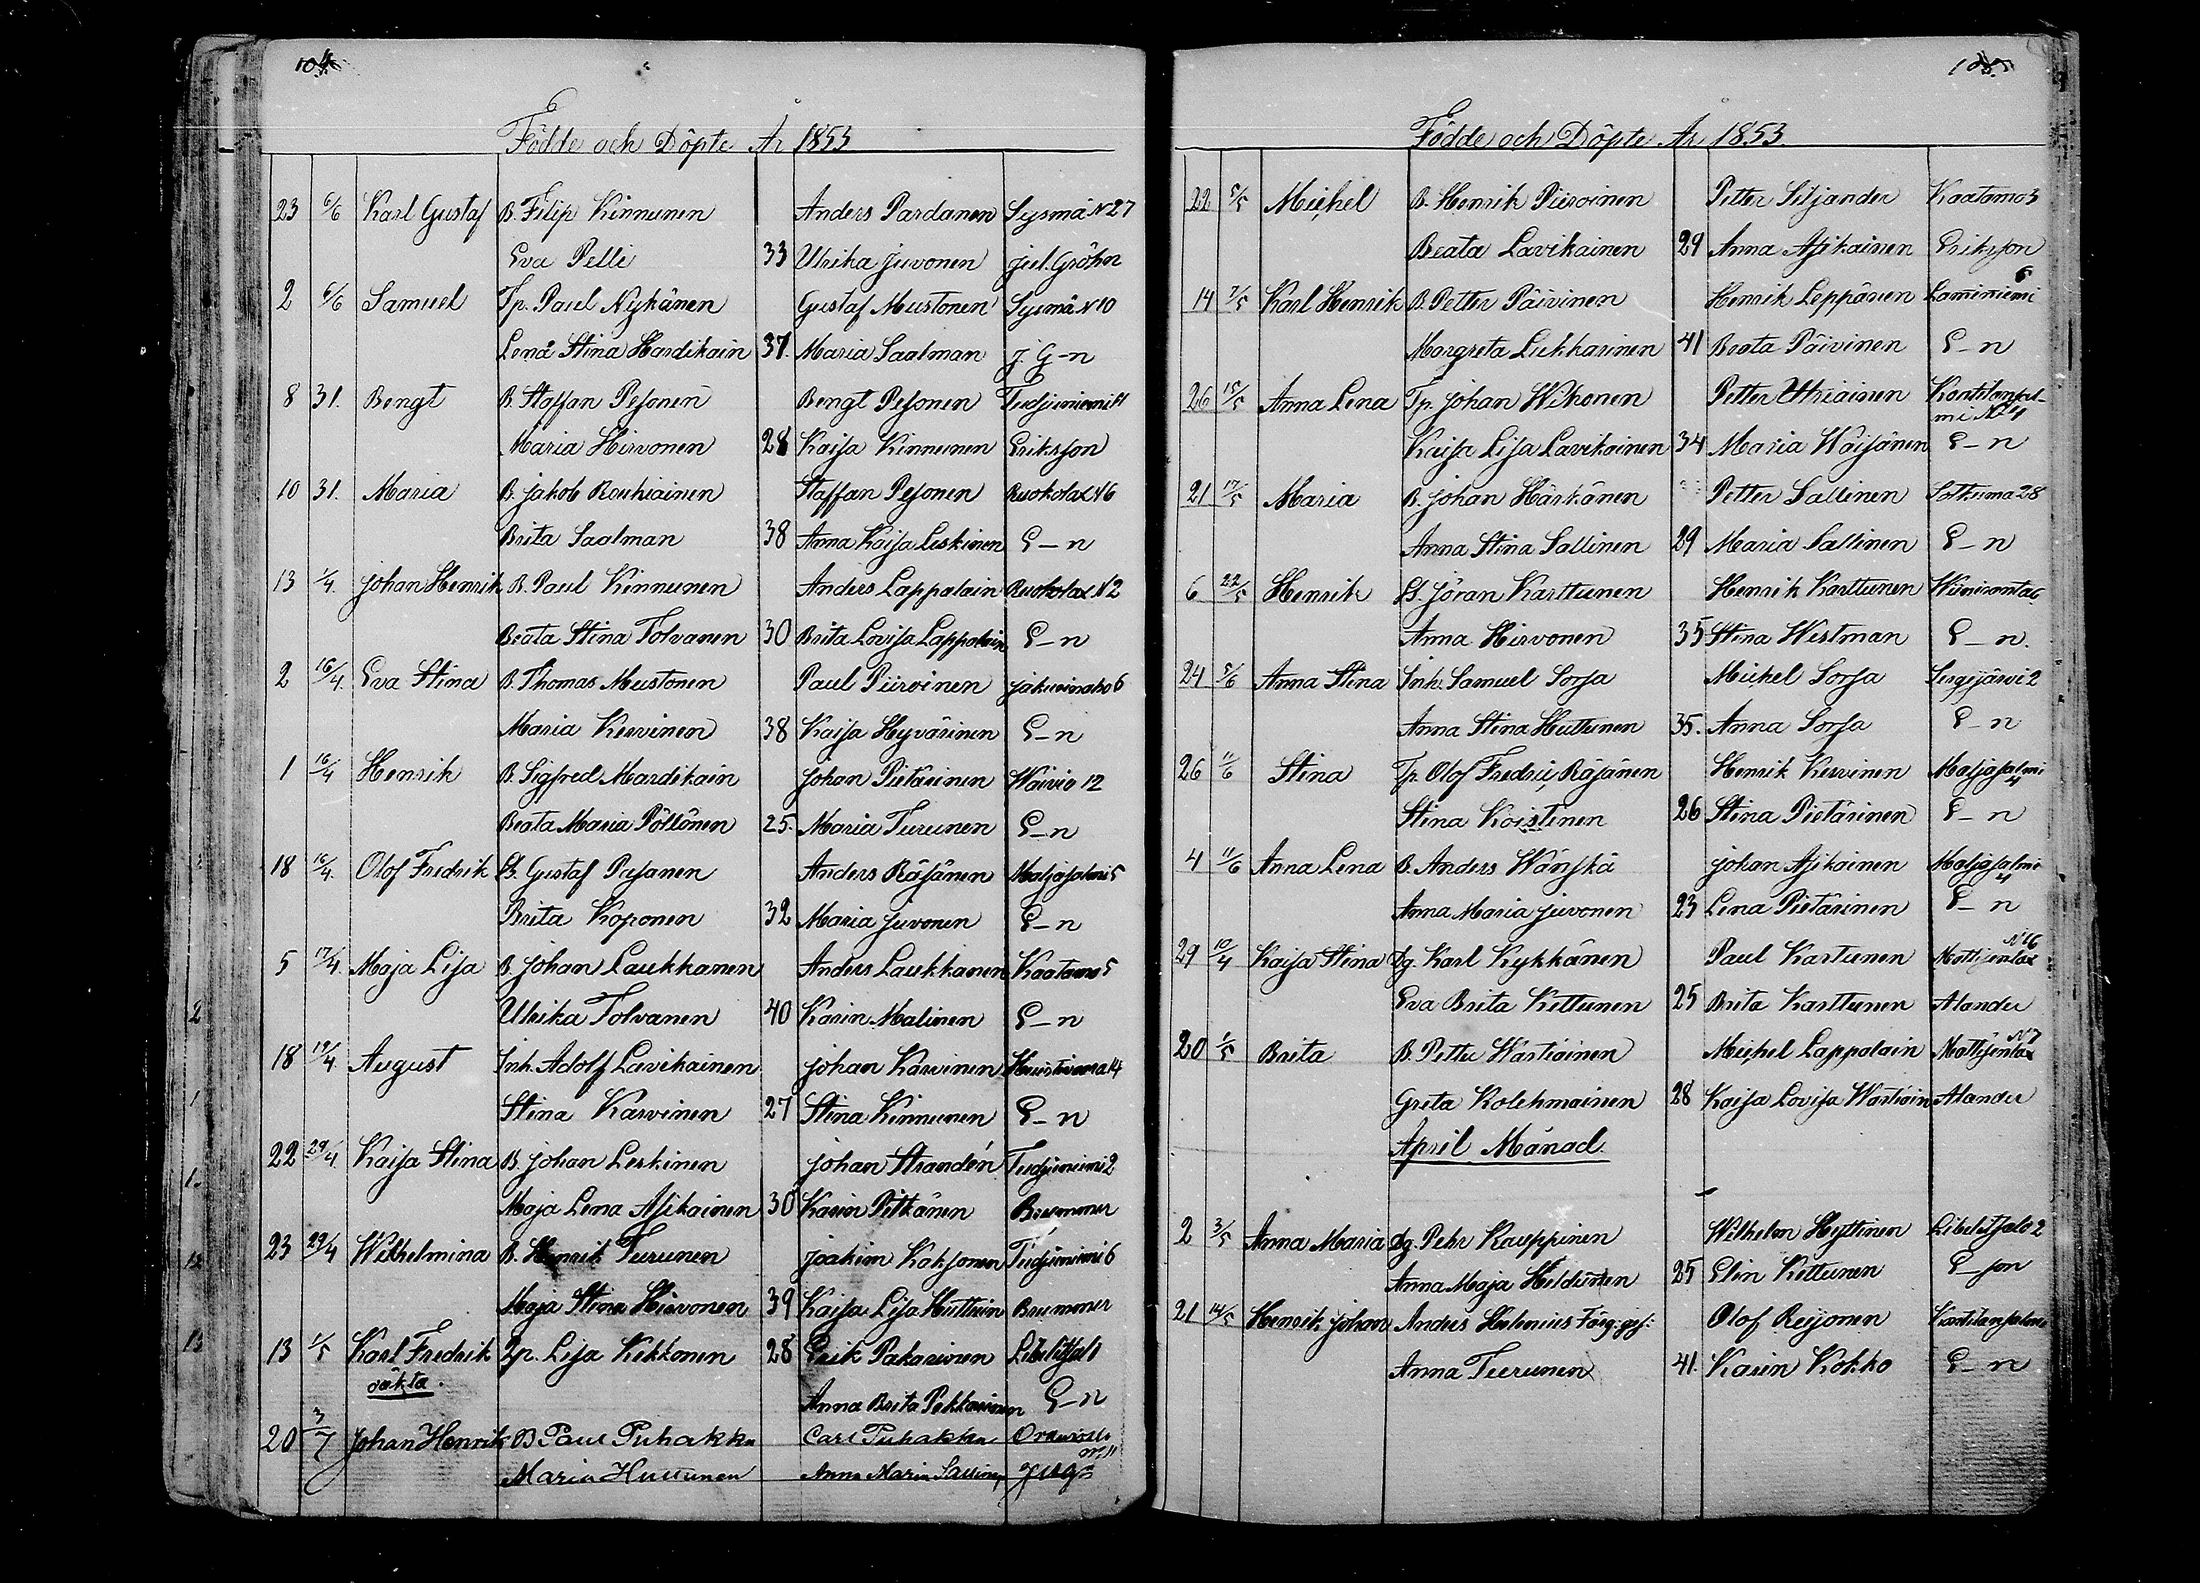 104.
Födde och Döpte År 1853
23 6/6 Karl Gustaf B. Filip Kinnunen Anders Pardanen Sysmä N 27
Eva Pelli 33 Ulrika Juvonen Jul. Gröhn
2 6/6 Samuel Tp. Paul Nykänen Gustaf Mustonen Sysmä N 10
Lena Stina Hardikain 37. Maria Saalman J G-n
8 31. Bengt B. Staffan Pesonen Bengt Pesonen
Maria Hirvonen 28 Kaisa Kinnunen Eriksson
10 31. Maria B. Jakob Rouhiainen Staffan Pesonen Ruokolax N 6
Brita Saalman 38 Anna Kaisa Leskinen E-n
13 1/4. Johan Henrik B. Paul Kinnunen Anders Lappalain Ruokolax N 2
Beata Stina Tolvanen 30 Brita Lovisa Lappalain E-n
2 16/4. Eva Stina B. Thomas Mustonen Paul Piiroinen Jakivinaho 6
Maria Kervinen 38 Kaisa Hyvärinen E-n
1 16/4 Henrik B. Sigfred Mardikain Johan Pietarinen Waivio 12
Beata Maria Pöllönen 25. Maria Turunen E-n
18 16/4. Olof Fredrik B. Gustaf Pasanen Anders Räsänen Maljasalmi 5
Brita Koponen 32 Maria Juvonen E-n
5 17/4. Maja Lisa B. Johan Laukkanen Anders Laukkanen Kaatamo 5
Ulrika Tolvanen 40 Karin Malinen E-n
18 19/4 August Inh. Adolf Lavikainen Johan Karvinen
Stina Karvinen 27 Stina Kinnunen E-n
22 29/4. Kaisa Stina B. Johan Leskinen Johan Strandén Tudjuniemi 2
Maja Lena Asikainen 30 Karin Pitkänen Brummer
23 29/4 Wilhelmina B. Henrik Turunen Joakim Kaksonen Tudjuniemi 6
Maja Stina Hirvonen 39 Kaisa Lisa Huttuin Brummer
13 1/5 Karl Fredrik Lisa Kekkonen 28 Erik Pakarinen
oäkta. Anna Brita Pekkarinen E-n
20 3/7 Johan Henrik B Paul Puhakka Carl Puhakka
Maria Huttunen Anna Maria Sallinen
105.
Födde och Döpte År 1853.
22 5/5 Michel B. Henrik Piiroinen Petter Siljander Kaatamo 3
Beata Lavikainen 29 Anna Asikainen Eriksson
14 7/5 Karl Henrik B. Petter Päivinen Henrik Leppänen Lamminiemi 6
Margreta Lukkarinen 41 Beata Päivinen E-n
26 15/5 Anna Lena Tp. Johan Wihonen Petter Utriainen Kontilanpal-
mi N 4
Kaisa Lisa Lavikainen 34 Maria Wäisänen E-n
21 17/5 Maria B. Johan Härkänen Petter Sallinen Sotkuma 28
Anna Stina Sallinen 29 Maria Sallinen E-n
6 22/5 Henrik B. Jöran Karttunen Henrik Karttunen Wiinirannta 6
Anna Hirvonen 35 Stina Westman E-n.
24 5/6 Anna Stina Inh. Samuel Sorsa Michel Sorsa Sergijärvi 2
Anna Stina Huttunen 35. Anna Sorsa E-n
26 11/6 Stina Tp. Olof Fredric Räsänen Henrik Kervinen Maljasalmi 4
Stina Koistinen 26 Stina Pietarinen E-n
4 11/6 Anna Lena B. Anders Wänskä Johan Asikainen Maljasalmi 4
Anna Maria Juvonen 23 Lena Pietarinen E-n
29 10/4 Kaisa Stina Dg. Karl Kykkänen Paul Kartunen Mattisenlax N 16
Eva Brita Kettunen 25 Brita Karttunen Alander
20 1/5 Brita B. Petter Wartiainen Michel Lappalain Mattisenlax N 7
Greta Kolehmainen 28 Kaisa Lovisa Wartiain Alander
April Månad.
2 3/5 Anna Maria Dg. Pehr Kauppinen Wilhelm Hyttinen Libelitsalo 2
Anna Maja Heldunen 25 Elin Kettunen E-son
21 14/5 Henrik Johan Anders Helenius Färg. ges: Olof Reijonen Kontilansalmi
Anna Turunen 41. Karin Kokko E-n